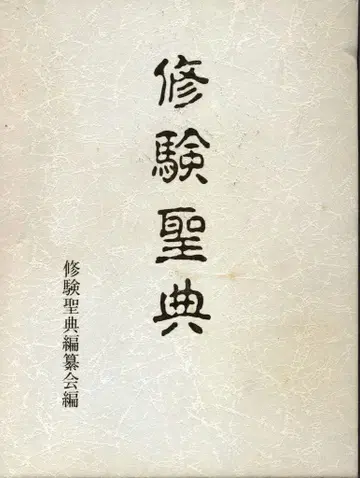 修験聖典
修験聖典編纂会編